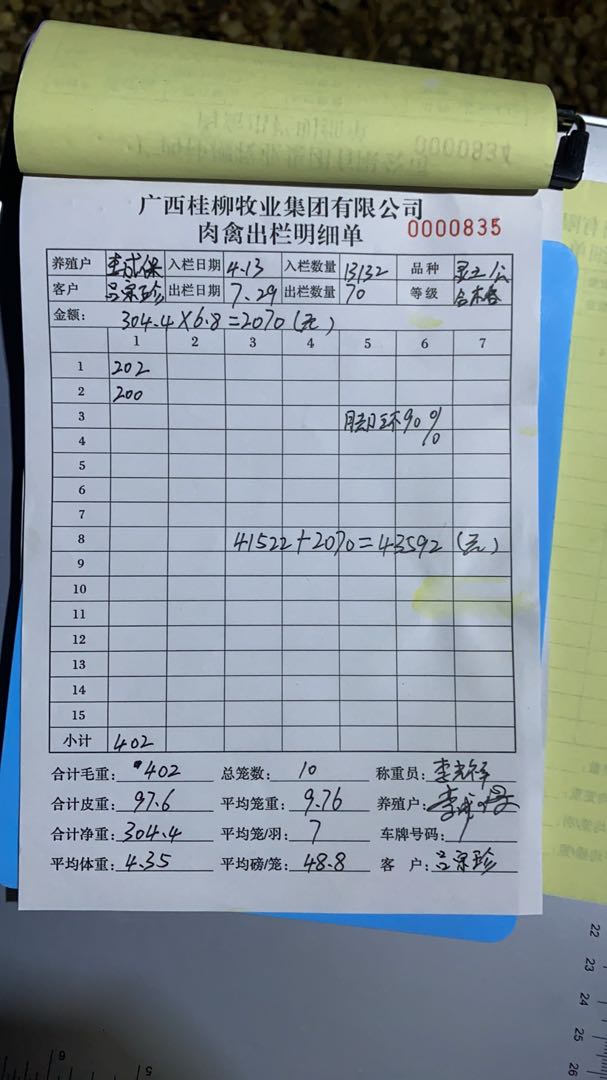 0000834
广西桂柳牧业集团有限公司
肉禽出栏明细单 0000835
养殖户 李成保 入栏日期 4.13 入栏数量 13132 品种 灵土1公
客户 吕宗珍 出栏日期 7.29 出栏数量 70 等级
金额: 304.4×6.8=2070(元)
1 2 3 4 5 6 7
1 202
2 200
3 脚环90%
4
5
6
7
8 41522+2070=43592(元)
9
10
11
12
13
14
15
小计 402
合计毛重: 402 总笼数: 10 称重员: 李光祥
合计皮重: 97.6 平均笼重: 9.76 养殖户: 李成保
合计净重: 304.4 平均笼/羽: 7 车牌号码: /
平均体重: 4.35 平均磅/笼: 48.8 客 户: 吕宗珍
22
23
24
25
26
6
5